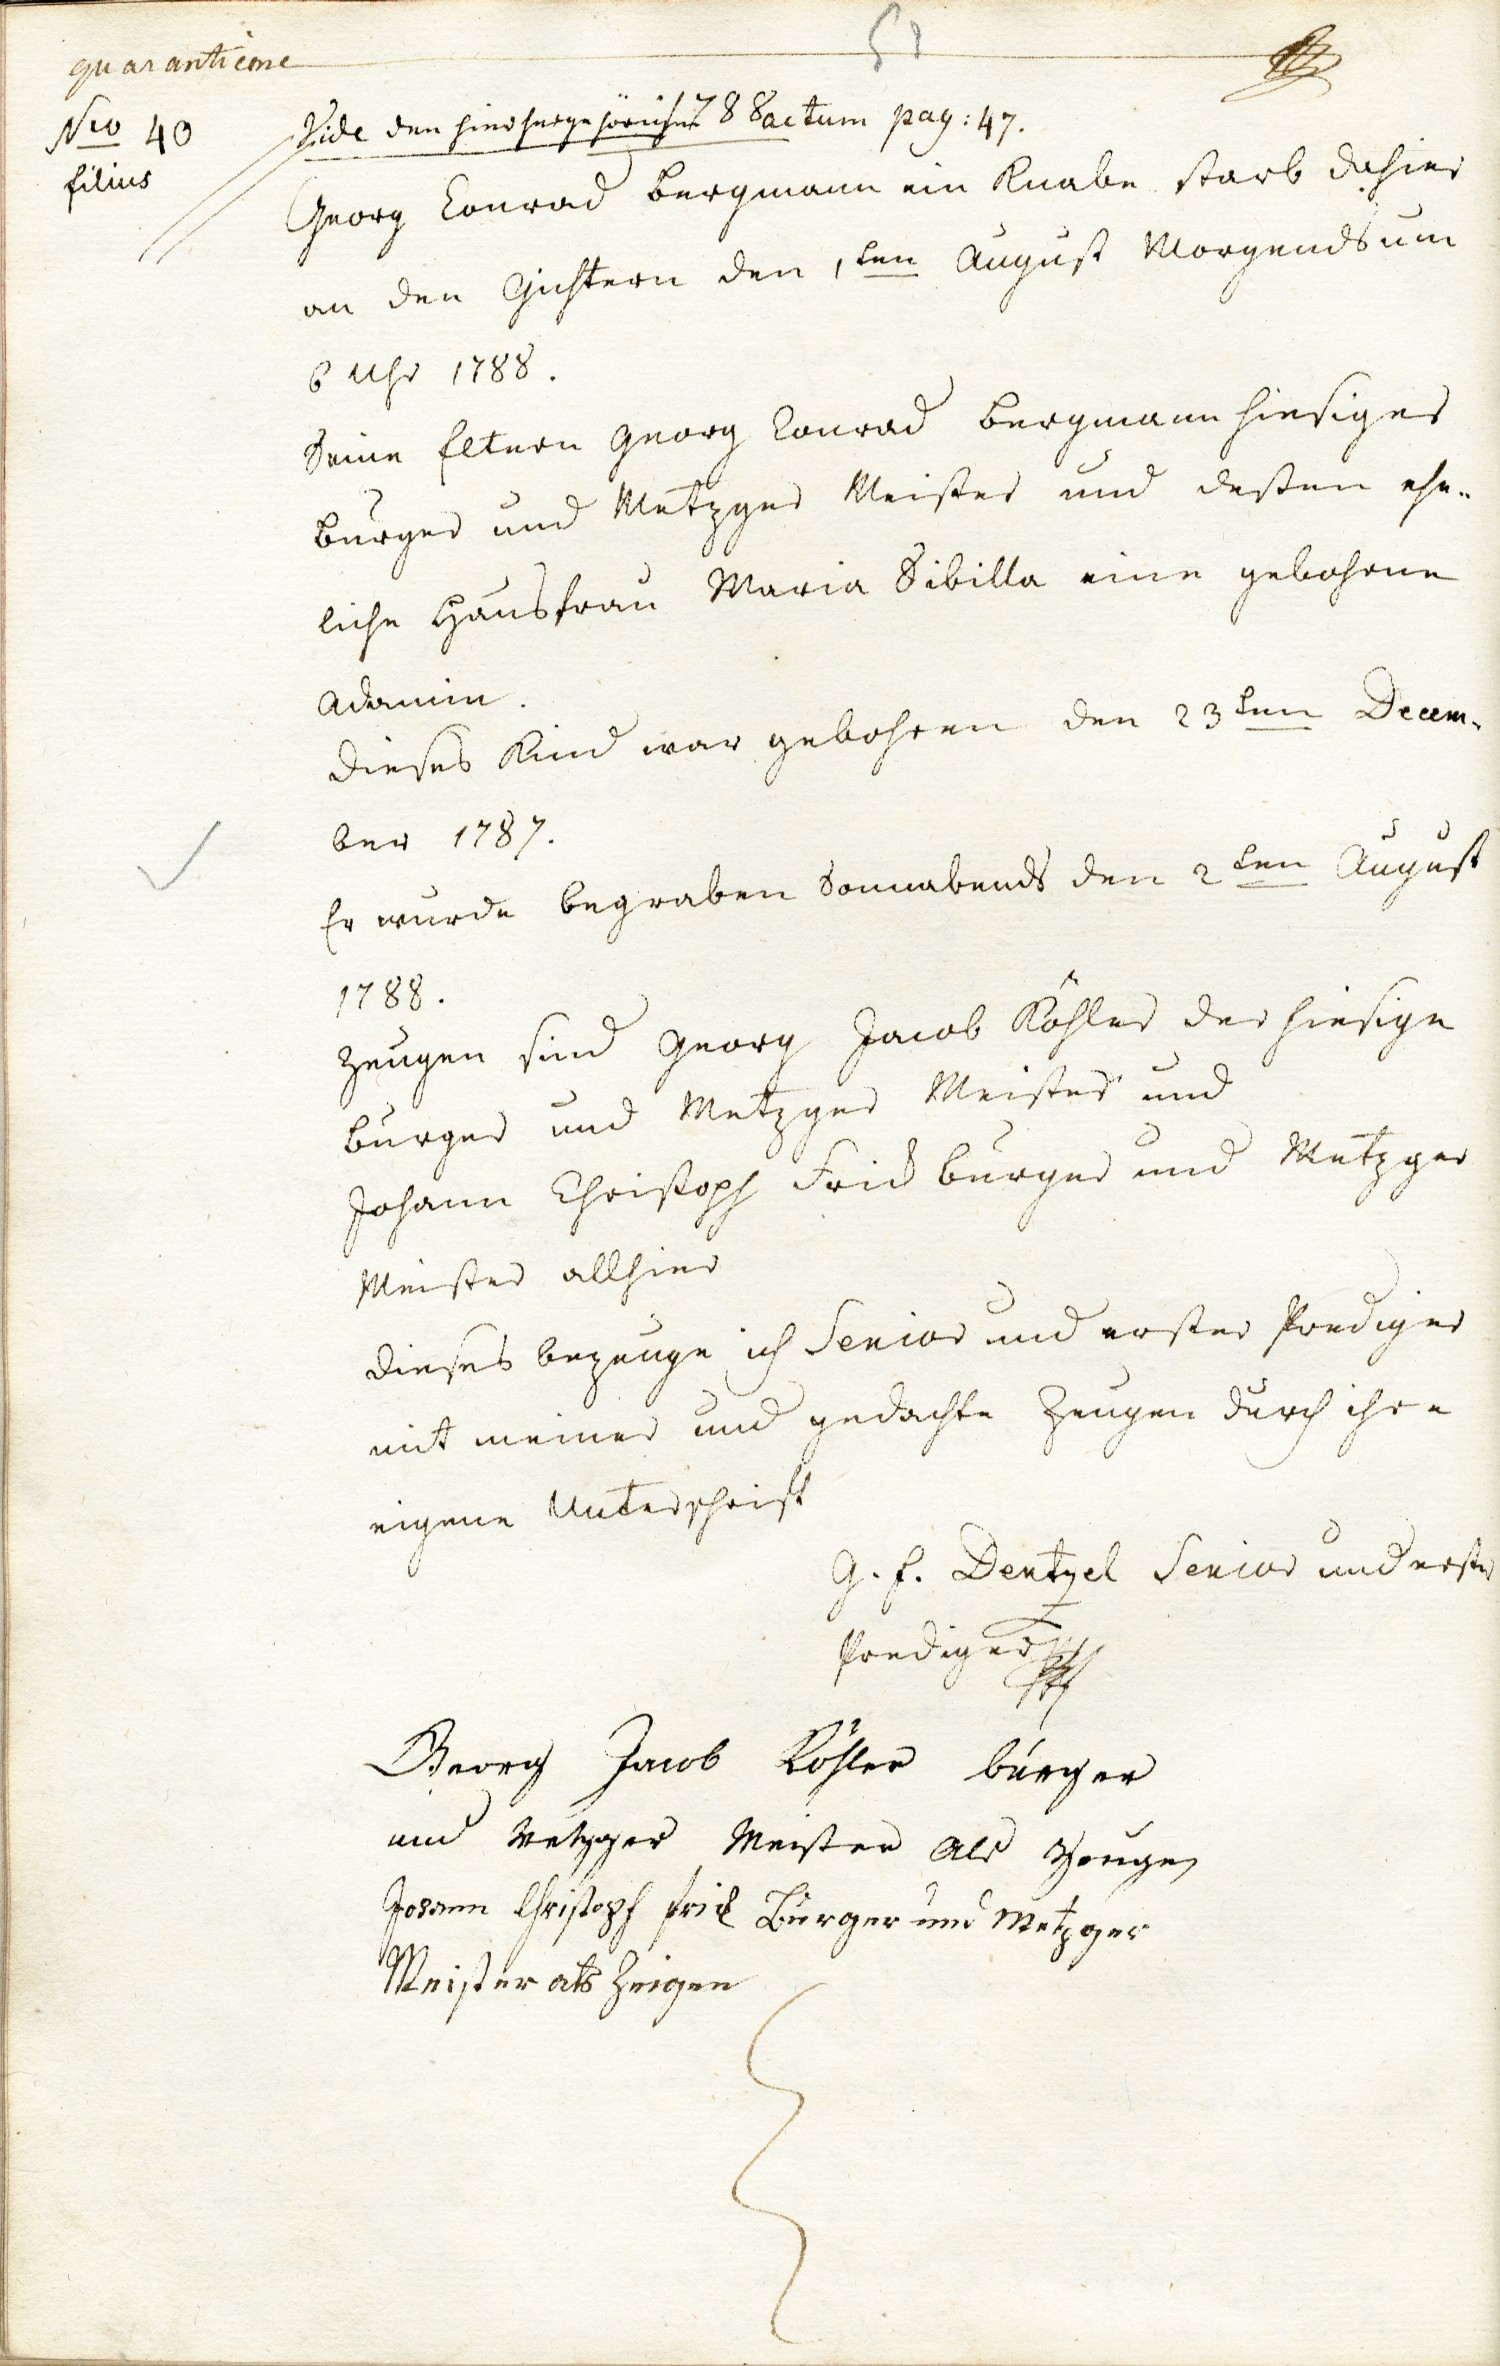 quarantieme
Nro 40
filius
Vide den hierher gehörichen 788 actum pag: 47.
Georg Conrad Bergmann ein Knabe starb dahier
an den Gichtern den 1ten August Morgends um
6 Uhr 1788.
Seine Eltern Georg Conrad Bergmann hiesiger
Burger und Metzger Meister und deßen ehe-
liche Hausfrau Maria Sibilla eine gebohrne
Adamin.
Dieses Kind war gebohren den 23ten Decem-
ber 1787.
Er wurde begraben Sonnabends den 2ten August
1788.
Zeugen sind Georg Jacob Köhler der hiesige
Burger und Metzger Meister und
Johann Christoph Frid Burger und Metzger
Meister allhier
Dieses bezeuge ich Senior und erster Prediger
mit meiner und gedachte Zeugen durch ihre
eigene Unterschrift
G. F. Dentzel Senior und erster
Prediger
Georg Jacob Köhler burger
und Metzger Meister als Zeuge
Johann Christoph Frid Burger und Metzger
Meister als Zeigen